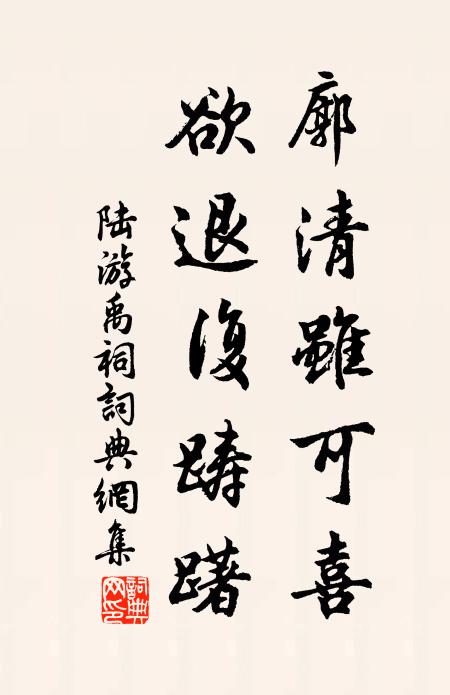 廓清雖可喜
欲退復踌躇
陆游禹祠詞典網集
詞典网印